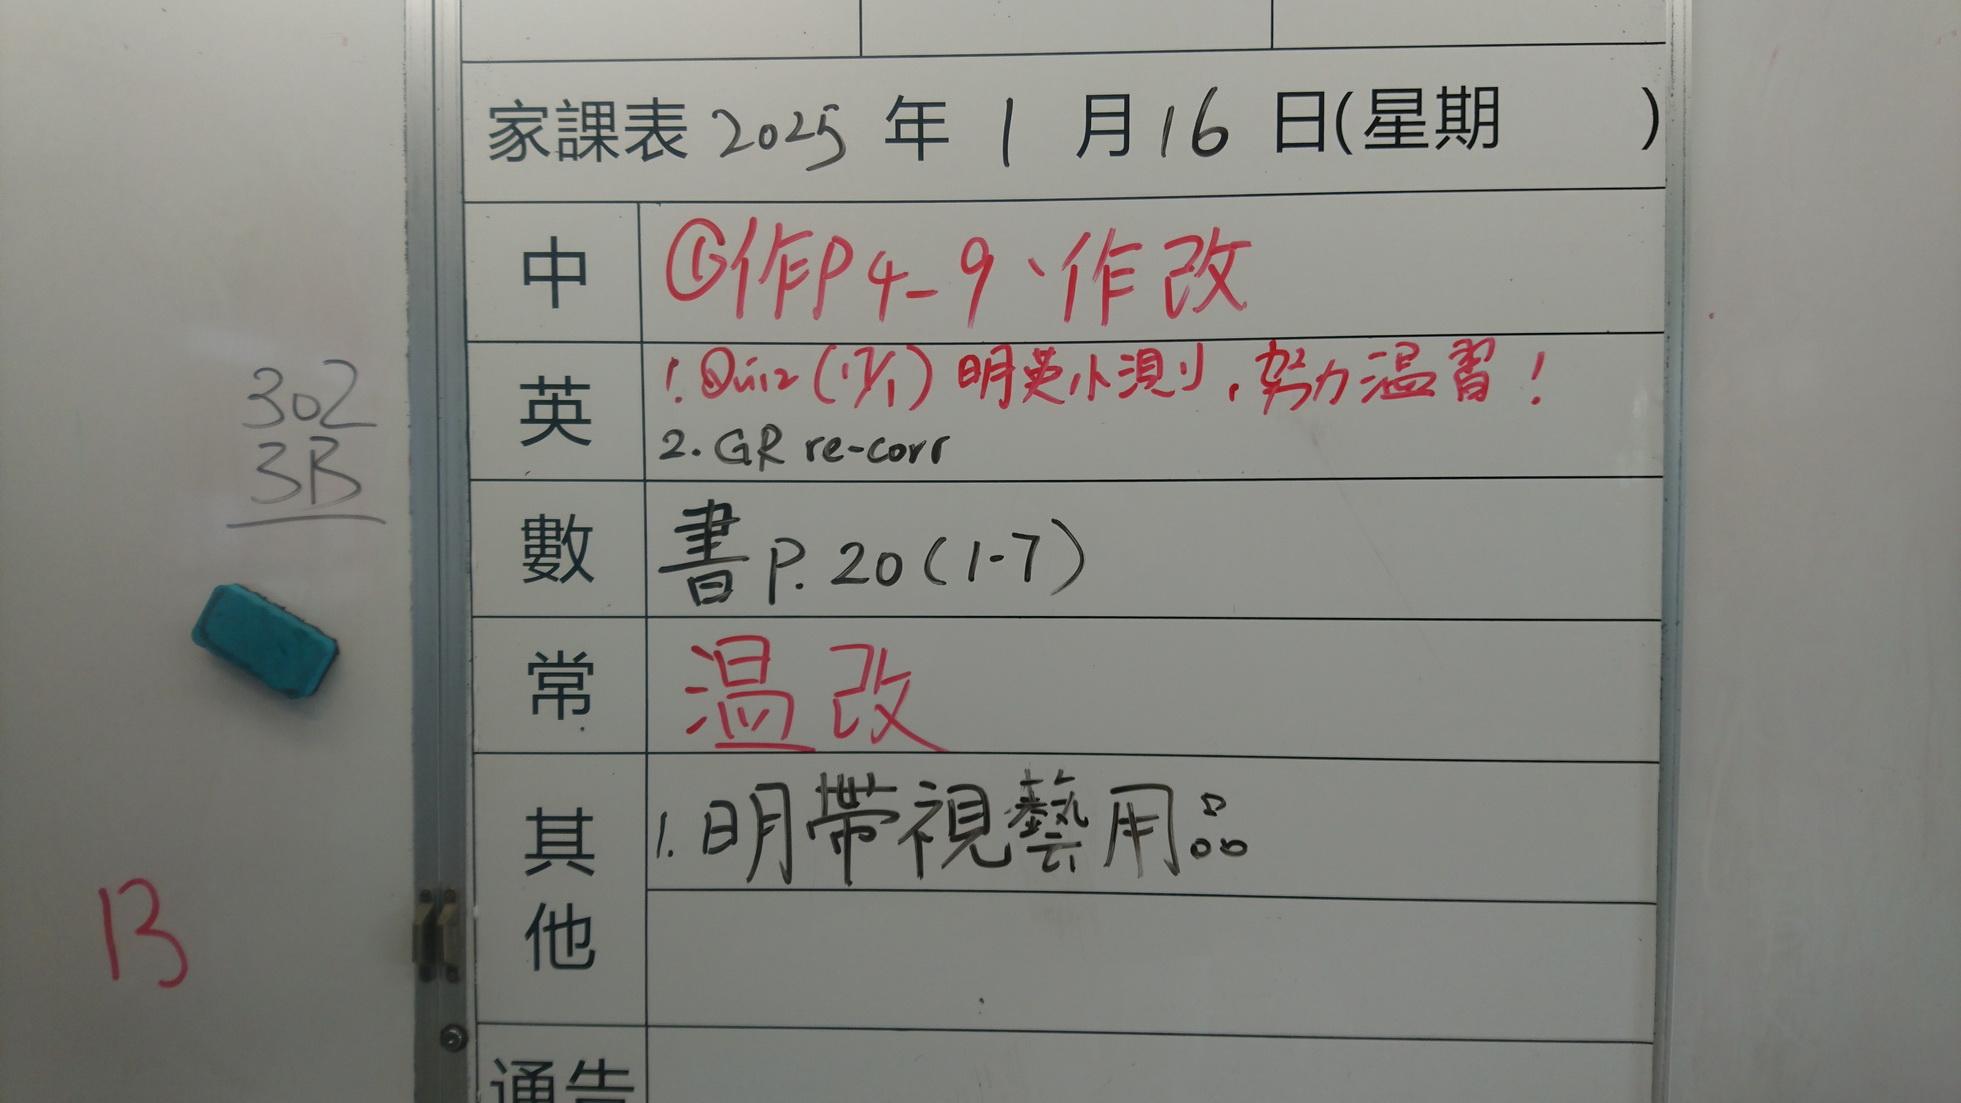 家課表 2025 年 1 月 16 日(星期 )
中 ①作P4-9、作改
英 1. Quiz (17/1) 明英小測，努力温習！
2. GR re-corr
數 書 P. 20 (1-7)
常 温改
其他 1. 明帶視藝用品
通告
302
3B
13